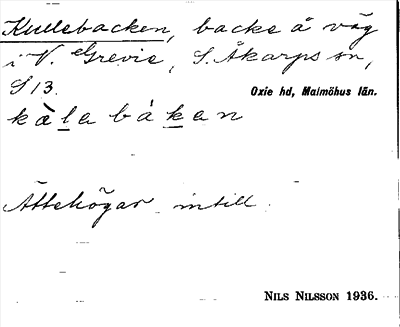 Kullebacken, backe å väg
i V. Grevie, S. Åkarps sn,
S 13.
Oxie hd, Malmöhus län.
kàlabákan
Ättehögar intill.
NILS NILSSON 1936.